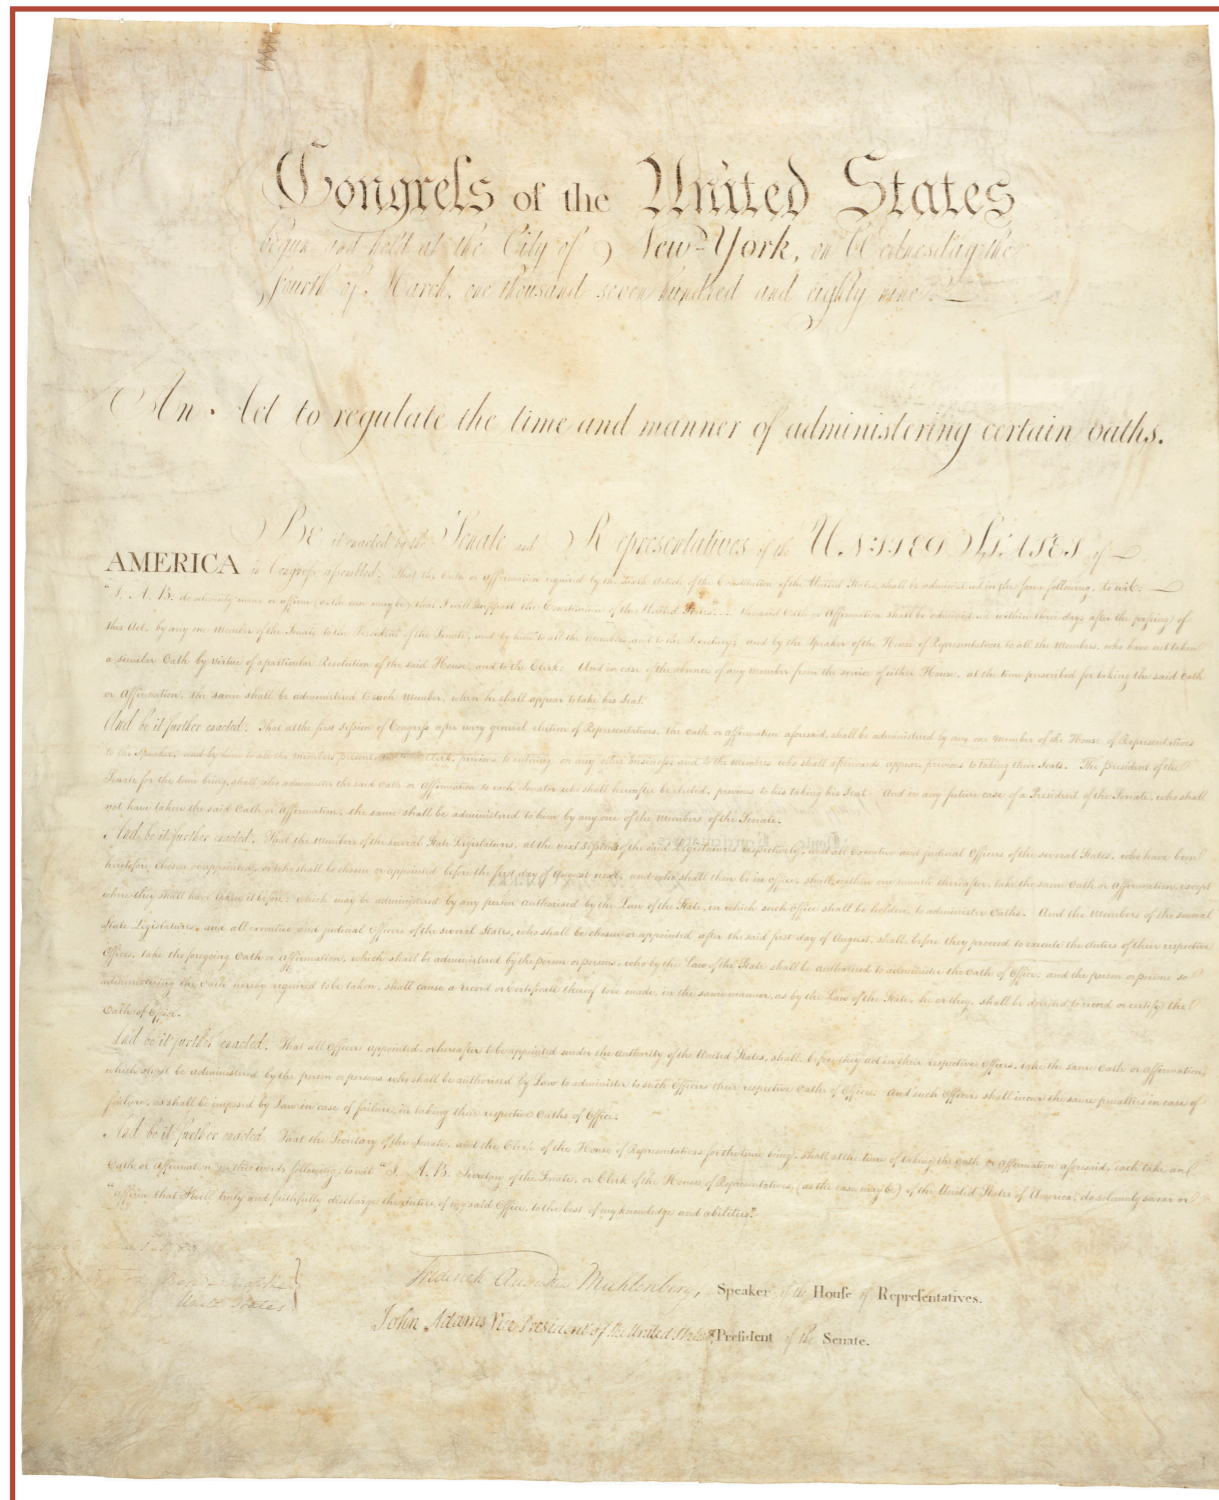 Congreſs of the United States
begun and held at the City of New-York, on Wednesday the
fourth of March, one thousand seven hundred and eighty nine.
An Act to regulate the time and manner of administering certain oaths.
BE it enacted by the Senate and Representatives of the UNITED STATES of
AMERICA in Congreſs aſsembled, That the Oath or Affirmation required by the sixth Article of the Constitution of the United States, shall be administered in the form following, to wit:
"I, A. B. do solemnly swear or affirm (as the case may be) that I will support the Constitution of the United States." The said Oath or Affirmation shall be administered within three days after the paſsing of
this Act, by any one Member of the Senate, to the President of the Senate, and by him to all the Members, and to the Secretary; and by the Speaker of the House of Representatives, to all the Members, who have not taken
a similar Oath by virtue of a particular Resolution of the said House, and to the Clerk: And in case of the absence of any Member from the service of either House, at the time prescribed for taking the said Oath
or Affirmation, the same shall be administered to such Member, when he shall appear to take his Seat.
And be it further enacted, That at the first Seſsion of Congreſs after every general election of Representatives, the Oath or Affirmation aforesaid, shall be administered by any one Member of the House of Representatives
to the Speaker, and by him to all the Members present, and to the Clerk, previous to entering on any other business and to the Members who shall afterwards appear, previous to taking their Seats. The President of the
Senate for the time being, shall also administer the said Oath or Affirmation to each Senator who shall hereafter be elected, previous to his taking his Seat: And in any future case of a President of the Senate, who shall
not have taken the said Oath or Affirmation, the same shall be administered to him by any one of the Members of the Senate.
And be it further enacted, That the Members of the several State Legislatures, at the next Seſsions of the said Legislatures respectively, and all Executive and judicial Officers of the several States, who have been
heretofore chosen or appointed, or who shall be chosen or appointed before the first day of August next, and who shall then be in Office, shall, within one month thereafter, take the same Oath or Affirmation, except
where they shall have taken it before; which may be administered by any person authorised by the Law of the State, in which such Office shall be holden, to administer Oaths. And the Members of the several
State Legislatures, and all executive and judicial Officers of the several States, who shall be chosen or appointed after the said first day of August, shall, before they proceed to execute the duties of their respective
Offices, take the foregoing Oath or Affirmation, which shall be administered by the person or persons, who by the Law of the State shall be authorised to administer the Oath of Office; and the person or persons so
administering the Oath hereby required to be taken, shall cause a record or Certificate thereof to be made, in the same manner, as by the Law of the State, he or they, shall be directed to record or certify the
Oath of Office.
And be it further enacted, That all Officers appointed, or hereafter to be appointed under the Authority of the United States, shall, before they act in their respective Offices, take the same Oath or Affirmation,
which shall be administered by the person or persons who shall be authorised by Law to administer to such Officers their respective Oaths of Office; And such Officers shall incur the same penalties in case of
failure, as shall be imposed by Law in case of failure, in taking their respective Oaths of Office.
And be it further enacted, That the Secretary of the Senate, and the Clerk of the House of Representatives for the time being, shall, at the time of taking the Oath or Affirmation aforesaid, each take an
Oath or Affirmation in the words following; to wit "I, A. B. Secretary of the Senate, or Clerk of the House of Representatives, (as the case may be) of the United States of America, do solemnly swear or
"affirm that I will truly and faithfully discharge the duties of my said Office, to the best of my knowledge and abilities."
United States
Frederick Augustus Muhlenberg, Speaker of the House of Representatives.
John Adams Vice President of the United States, Preſident of the Senate.